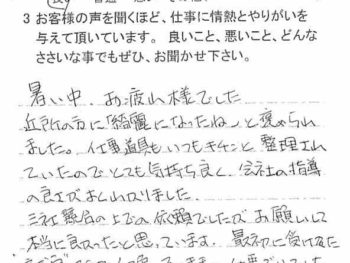 3 お客様の声を聞くほど、仕事に情熱とやりがいを
与えて頂いています。 良いこと、悪いこと、どんな
ささいな事でもぜひ、お聞かせ下さい。
暑い中、お疲れ様でした
近所の方に「綺麗になったね」と褒められ
ました。仕事道具もいつもキチンと整理され
ていたのでとても気持ち良く、会社の指導
の良さがよくわかりました。
三社 の上での依頼でしたが お願いして
本当に良かったと思っています。最初に受けた